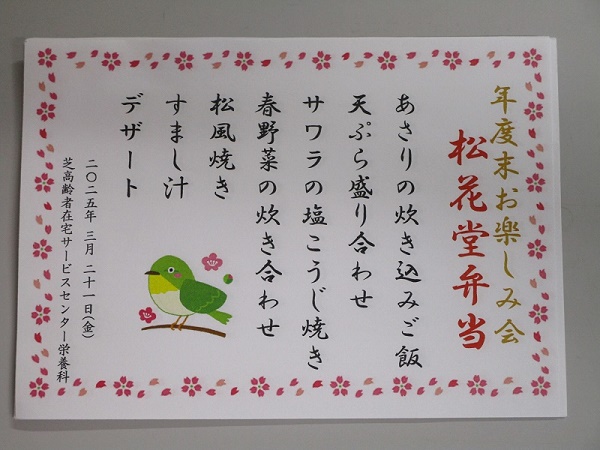 年度末お楽しみ会
松花堂弁当
あさりの炊き込みご飯
天ぷら盛り合わせ
サワラの塩こうじ焼き
春野菜の炊き合わせ
松風焼き
すまし汁
デザート
二〇二五年 三月 二十一日(金)
芝高齢者在宅サービスセンター栄養科